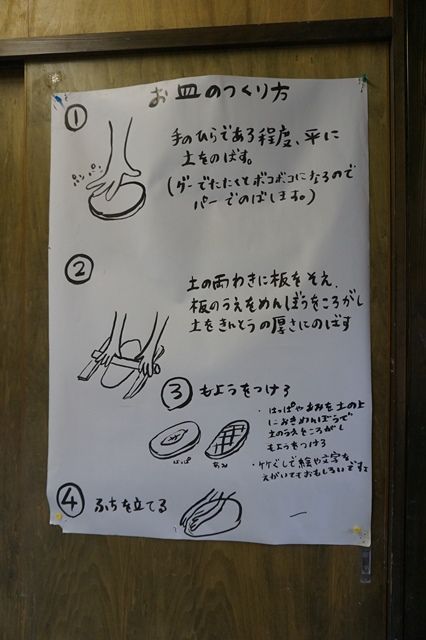 お皿のつくり方
①
手のひらである程度、平に
土をのばす。
(グーでたたくとボコボコになるので
パーでのばします。)
パン パン
②
土の両わきに板をそえ、
板のうえをめんぼうをころがし
土をきんとうの厚さにのばす
③ もようをつける
・はっぱやあみを土の上
におきめんぼうで
土のうえをころがし
もようをつける
はっぱ
あみ
・竹ぐしで絵や文字を
えがいてもおもしろいですよ
④ ふちを立てる